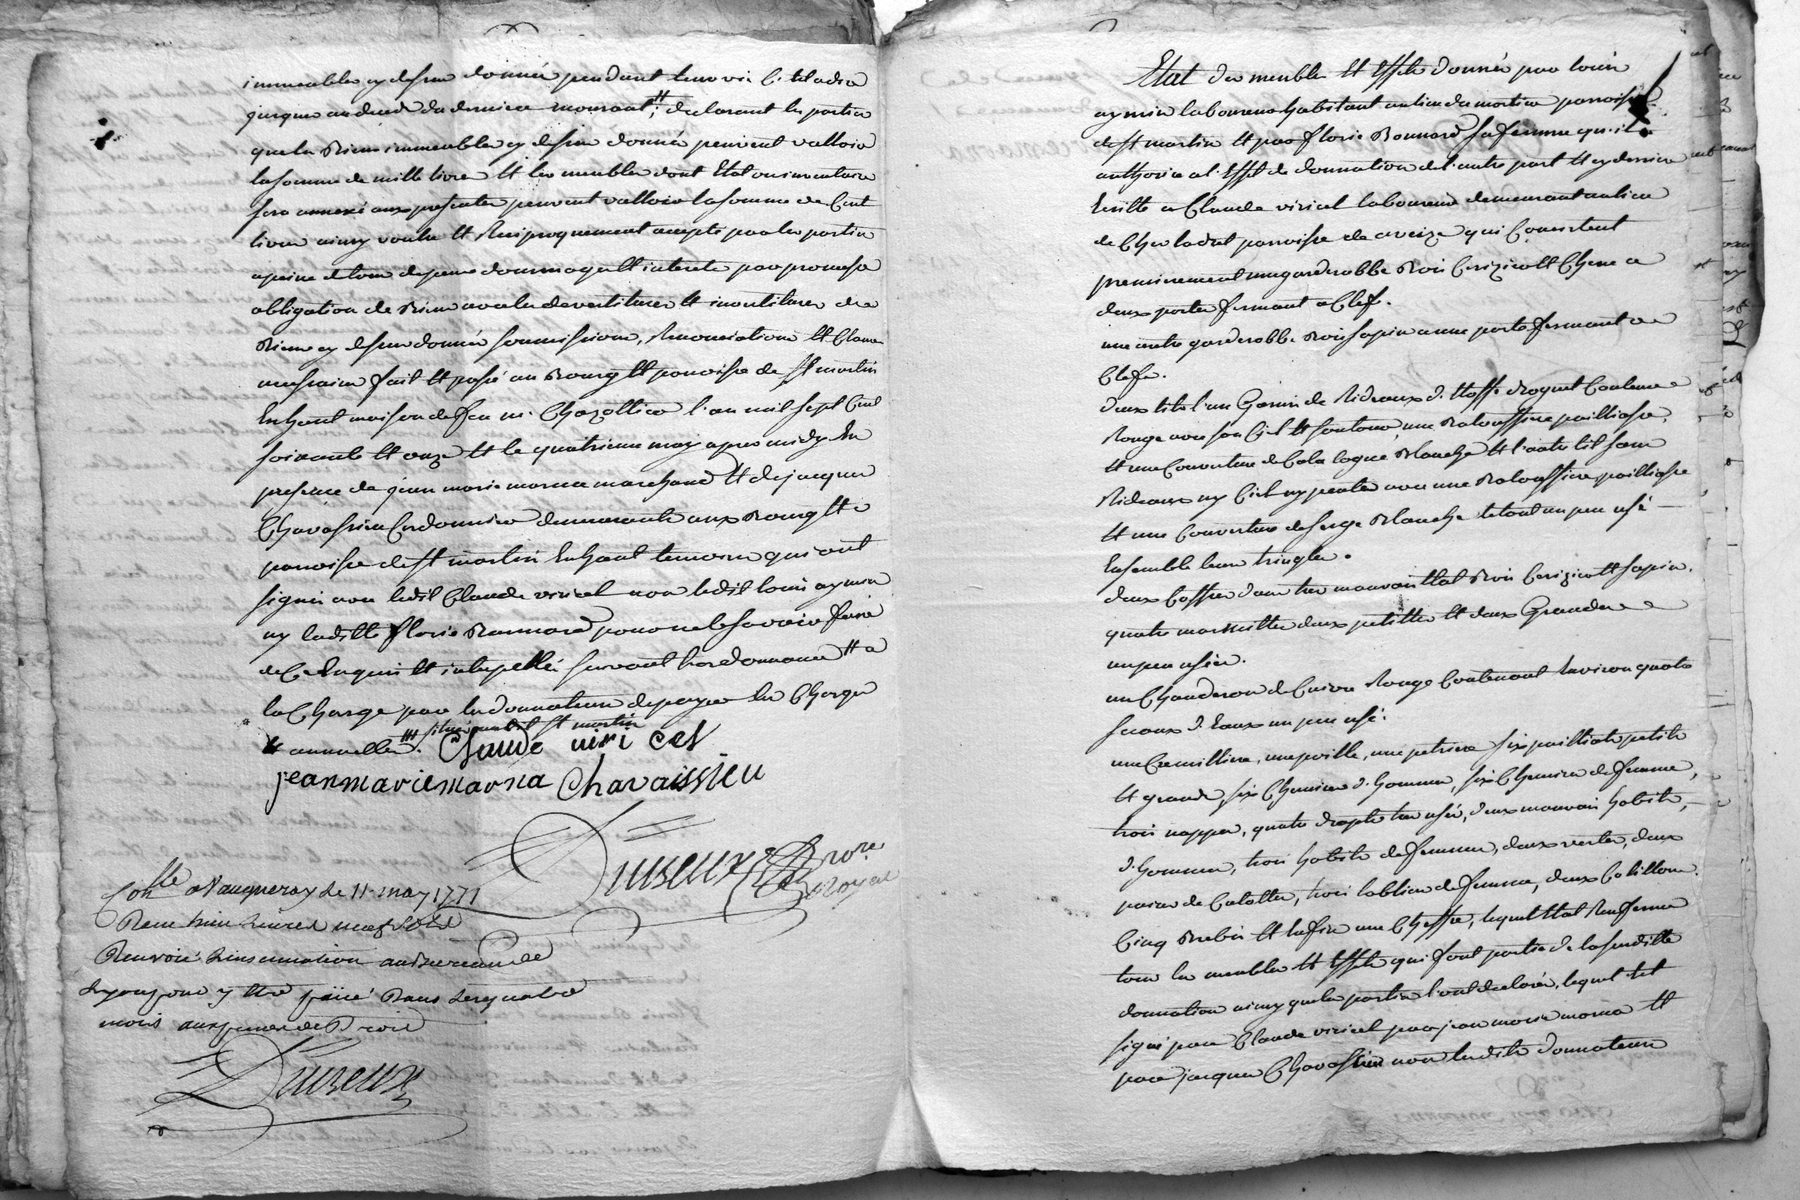 immeubles cy dessus donnés pendant leur vie c'est adire
jusques au deceds du dernier mourant, declarant les parties
que les biens immeubles cy dessus donnés peuvent valloir
la somme de mille livres et les meubles dont Etat ou inventaire
sera annexé aux presentes peuvent valloir la somme de Cent
livres ainsy voulu et Reciproquement accepté par les parties
a peine de tous depens dommages et interets par promesse
obligation de biens avec les devestitures et investitures des
biens cy dessus donnés soumissions, Renonciations et Clauses
necessaires fait et passé au Bourg et paroisse de St martin
En haut maison de feu m. Chazottier l'an mil sept Cent
soixante et onze et le quatrieme may apres midy En
presence de jean marie marna marchand et de jacques
Chavassieu Cordonnier demeurants aux Bourg et
paroisse de St martin En haut temoins qui ont
signé avec ledit Claude viricel non ledit louis aymin
ny laditte florie Bonnard pour ne le savoir faire
de Ce Enquis et interpellés suivant l'ordonnance a
la Charge par les donnateurs de payer les Charges
annuelles. situés audit St martin
Claude viri cel
jean marie marna Chavaissieu
Duseux Nore Royal
Conlle a Vaugneray le 11 may 1771
Renvoié l'insinuation au bureau de
Lyon pour y etre faite dans les quatre
mois aux peines de Droit
Duseux
Etat des meubles et Effets donnés par louis
aymin laboureur habitant au lieu du mortier paroisse
de St martin et par florie Bonnard sa femme qu'il
authorise a l'Effet de donnation de l'autre part et cy derriere
Ecritte a Claude viricel laboureur demeurant au lieu
de Chez ladret paroisse de aveize qui Consistent
premierement une garderobbe bois Cerizier et Chene a
deux portes fermant a Clef.
une autre garderobbe bois sapin a une porte fermant a
Clefs.
deux lits l'un Garni de Rideaux d'Etoffe droguet Couleur
Rouge avec son Ciel et son tour, une Balouffiere pailliasse,
et une Couverture de Catalogne blanche et l'autre lit sans
Rideaux ny Ciel ny pentes avec une Balouffiere pailliasse
et une Couverture de serge blanche le tout un peu usé
Ensemble leurs tringles.
deux Coffres dans tres mauvais Etat bois Cerizier et sapin.
quatre marmittes deux petittes et deux Grandes
un peu usées.
un Chauderon de Cuivre Rouge Contenant Environ quatre
seaux d'Eaux un peu usé.
une Cremilliere, une poille, une petriere six pailliats petits
et grands six Chemises d'hommes, six Chemises de femme,
trois nappes, quatre draps tres usés, deux mauvais habits
d'hommes, trois habits de femmes, deux vestes, deux
paires de Calottes, trois tabliers de femme, deux Cotillons.
Cinq brebis et Enfin une Cheffre, lequel Etat Renferme
tous les meubles et Effets qui font partie de la susditte
donnation ainsy que les parties l'ont declaré, lequel Est
signé par Claude viricel par jean marie marna et
par jacques Chavassieu non lesdits donnateurs